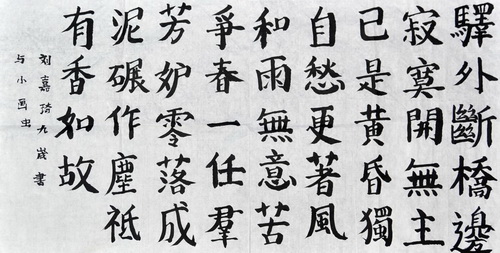 驛外斷橋邊
寂寞開無主
已是黃昏獨
自愁更著風
和雨無意苦
爭春一任羣
芳妒零落成
泥碾作塵祗
有香如故
刘嘉琦九歲書
与小画虫